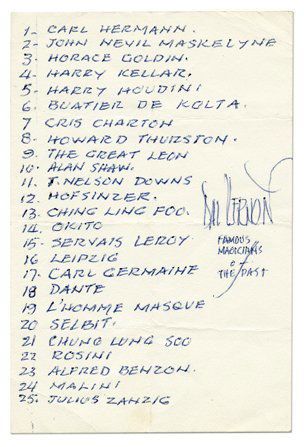 1- CARL HERMANN.
2- JOHN NEVIL MASKELYNE
3- HORACE GOLDIN.
4- HARRY KELLAR.
5- HARRY HOUDINI
6- BUATIER DE KOLTA.
7 CRIS CHARTON
8- HOWARD THURSTON.
9- THE GREAT LEON
10- ALAN SHAW.
11. T. NELSON DOWNS
12- HOFSINZER.
13- CHING LING FOO.
14. OKITO
15- SERVAIS LEROY.
16- LEIPZIG
17- CARL GERMAINE
18 DANTE
19 L'HOMME MASQUE
20 SELBIT.
21 CHUNG LUNG SOO
22 ROSINI
23 ALFRED BENZON.
24 MALINI
25- JULIUS ZANZIG
DAI VERNON
FAMOUS
MAGICIANS
of
THE PAST